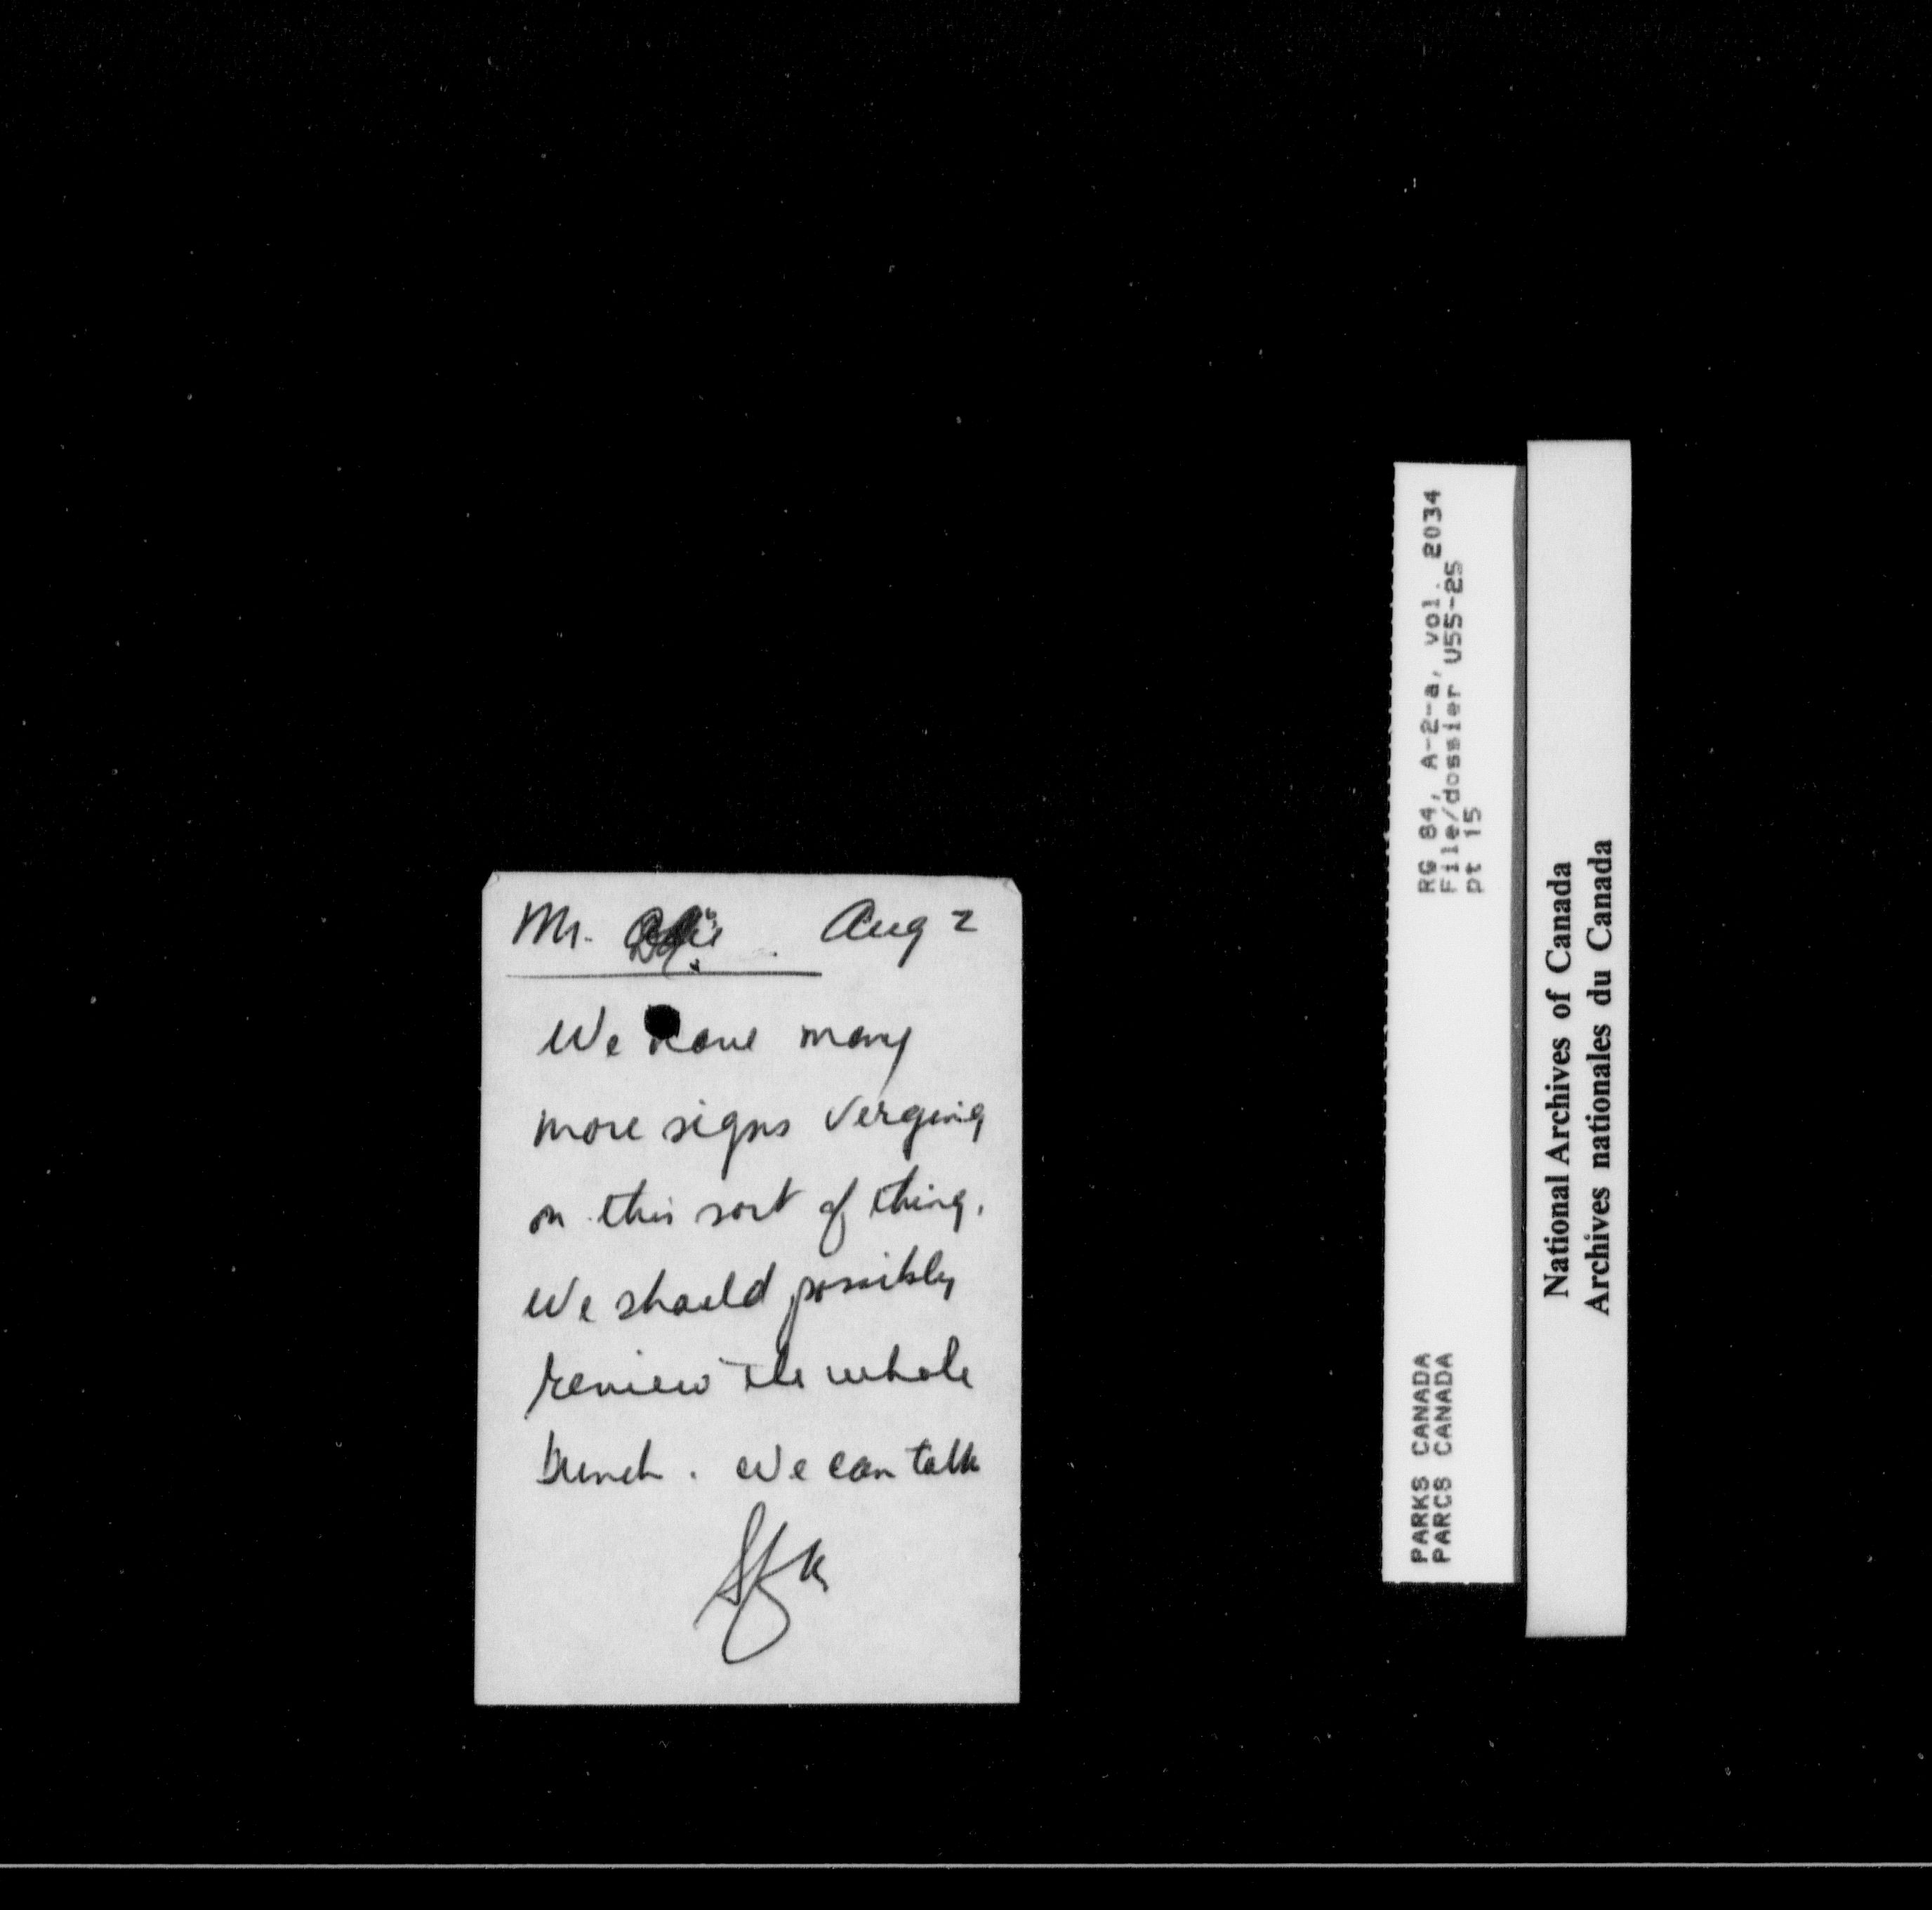 Mr. Aug 2
We have many
more signs verging
on this sort of thing.
We should possibly
review the whole
bunch. We can talk
RG 84, A-2-a, vol. 2034
File/dossier U55-25
pt 15
PARKS CANADA
PARCS CANADA
National Archives of Canada
Archives nationales du Canada